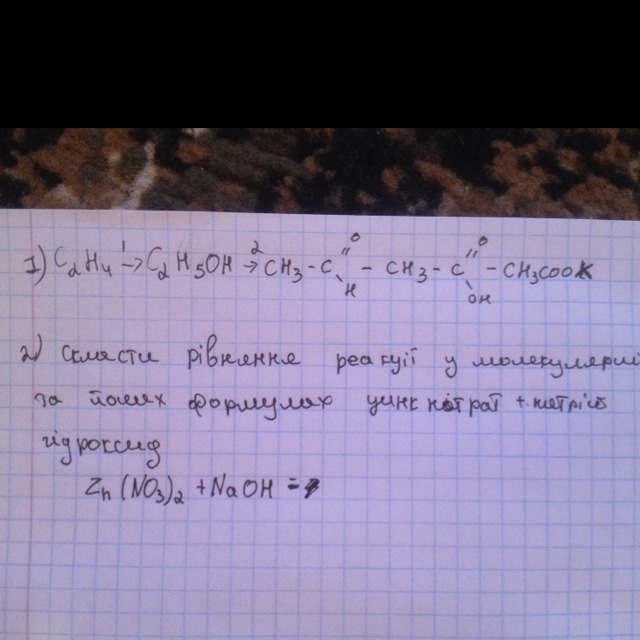 1) C₂H₄ ¹→ C₂H₅OH ²→ CH₃-C(=O)H - CH₃-C(=O)OH - CH₃COOK
2) Скласти рівняння реакції у молекулярній
за йоних формулах цинк нітрат + натрій
гідроксид
Zn(NO₃)₂ + NaOH =